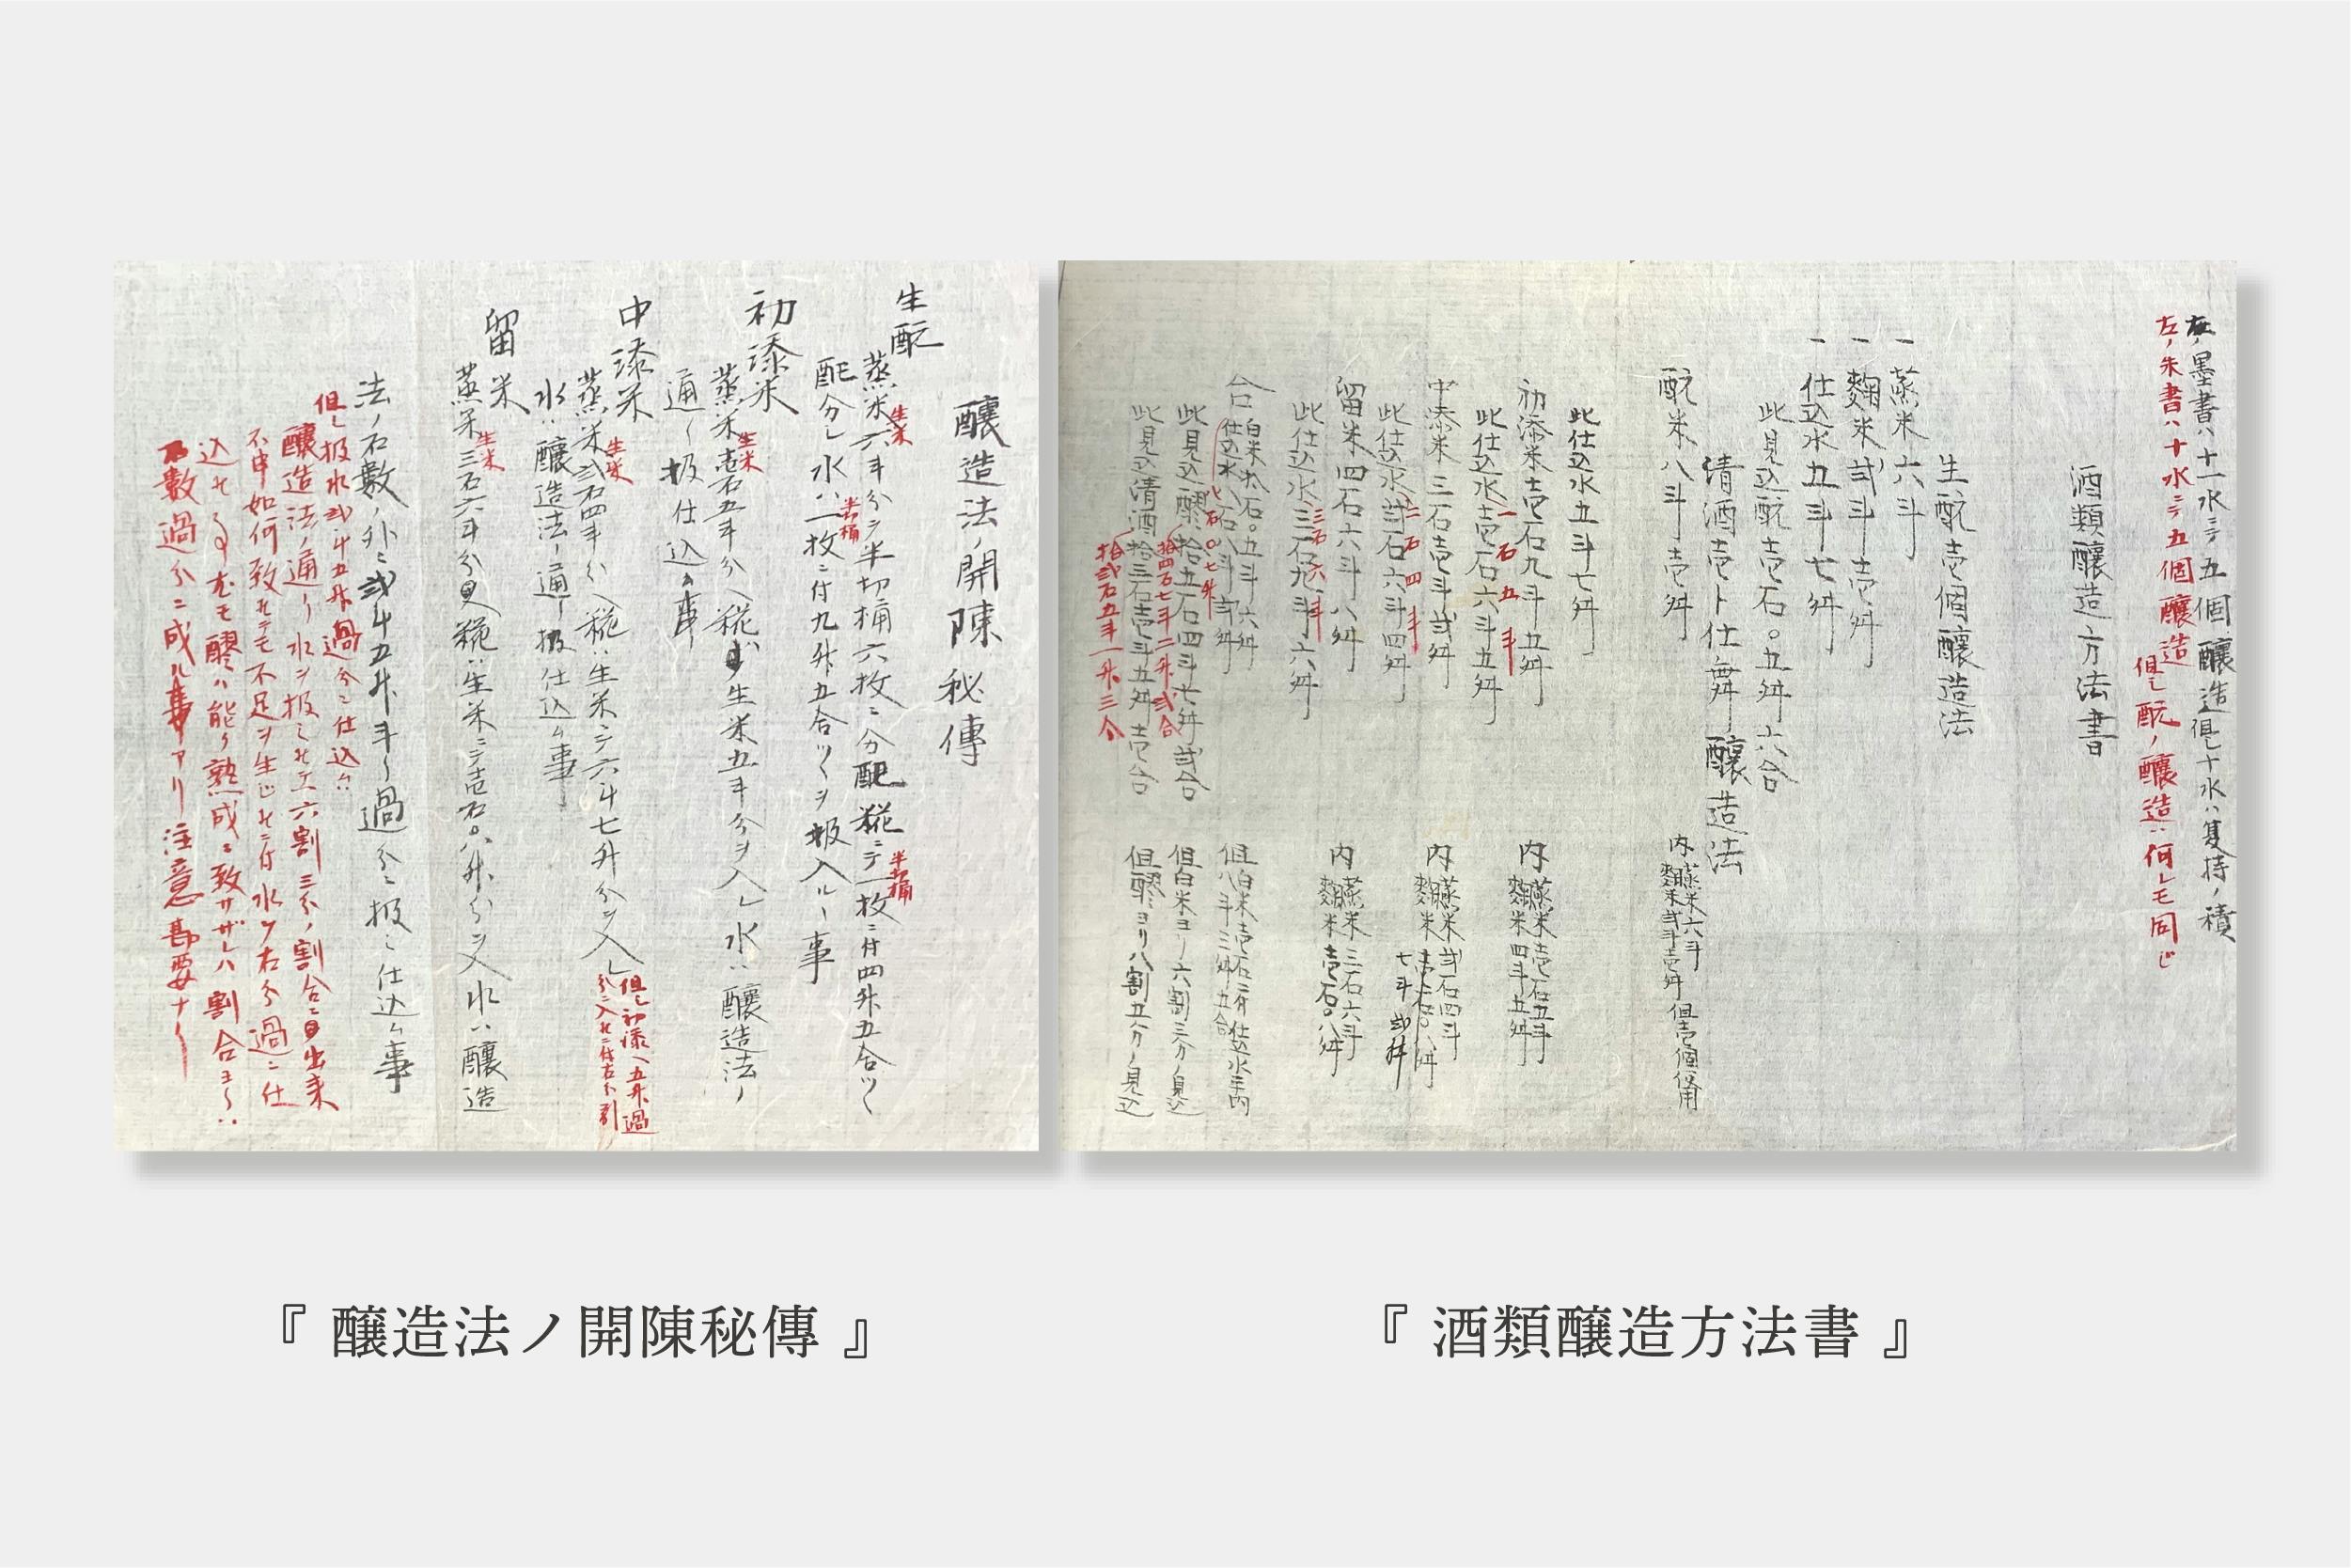 右ノ墨書ハ十一水ニテ五個醸造但シ十水ハ复持ノ積
左ノ朱書ハ十水ニテ五個醸造
但シ酛ノ醸造ハ何レモ同じ
酒類醸造方法書
生酛壱個醸造法
一 蒸米六斗
一 麹米弐斗壱舛
一 仕込水五斗七舛
此見込酛壱石〇五舛六合
清酒壱ト仕舞醸造法
酛米八斗壱舛
内 蒸米六斗
麹米弐斗壱舛 但壱個
此仕込水五斗七舛
初添米壱石九斗五舛
内 蒸米壱石五斗
麹米四斗五舛
此仕込水壱石六斗五舛
一石五斗
中添米三石壱斗弐舛
内 蒸米弐石四斗
麹米
七斗弐舛
此仕込水弐石六斗四舛
二石四斗
留米四石六斗八舛
内 蒸米三石六斗
麹米壱石〇八舛
此仕込水三石九斗六舛
三石六斗
合 白米拾石〇五斗六舛
仕込水八石八斗弐舛
石〇七升
但白米壱石ニ付仕込水
八斗三舛五合
此見込醪拾五石四斗七舛弐合
拾四石七斗二升弐合
但白米ヨリ六割三分ノ見込
此見込清酒拾三石壱斗五舛壱合
拾弐石五斗一升三合
但醪ヨリ八割五分ノ見込
醸造法ノ開陳秘傳
生酛
蒸米六斗分ヲ半切桶六枚ニ分配糀ニテ一枚ニ付四升五合ツヽ
生米
半桶
配分シ水ハ一枚ニ付九升五合ツヽヲ扱入ルヽ事
半桶
初添米
蒸米壱石五斗分ヘ糀ハ生米五斗分ヲ入レ水ハ醸造法ノ
生米
通リ扱仕込ム事
中添米
蒸米弐石四斗分ヘ糀ハ生米ニテ六斗七升分ヲ入レ
生米
但シ初添ヘ五升過
分ニ入レニ付
水ハ醸造法ノ通リ扱仕込ム事
留米
蒸米三石六斗分ヘ糀ハ生米ニテ壱石〇八升分ヲ入水ハ醸造
生米
法ノ石數ノ外ニ弐斗五升斗リ過分ニ扱ヒ仕込ム事
但シ扱水弐斗五升過分ニ仕込ムハ
醸造法ノ通リ水ヲ扱ヒ六割三分ノ割合ニ出来
不申如何致ヒテモ不足ヲ生じ付水ヲ右分過ニ仕
込ヒ醪ハ能ク熟成ニ致サザレハ割合ヨリハ
數過分ニ成ル事アリ注意勘要ナリ
『醸造法ノ開陳秘傳』
『酒類醸造方法書』